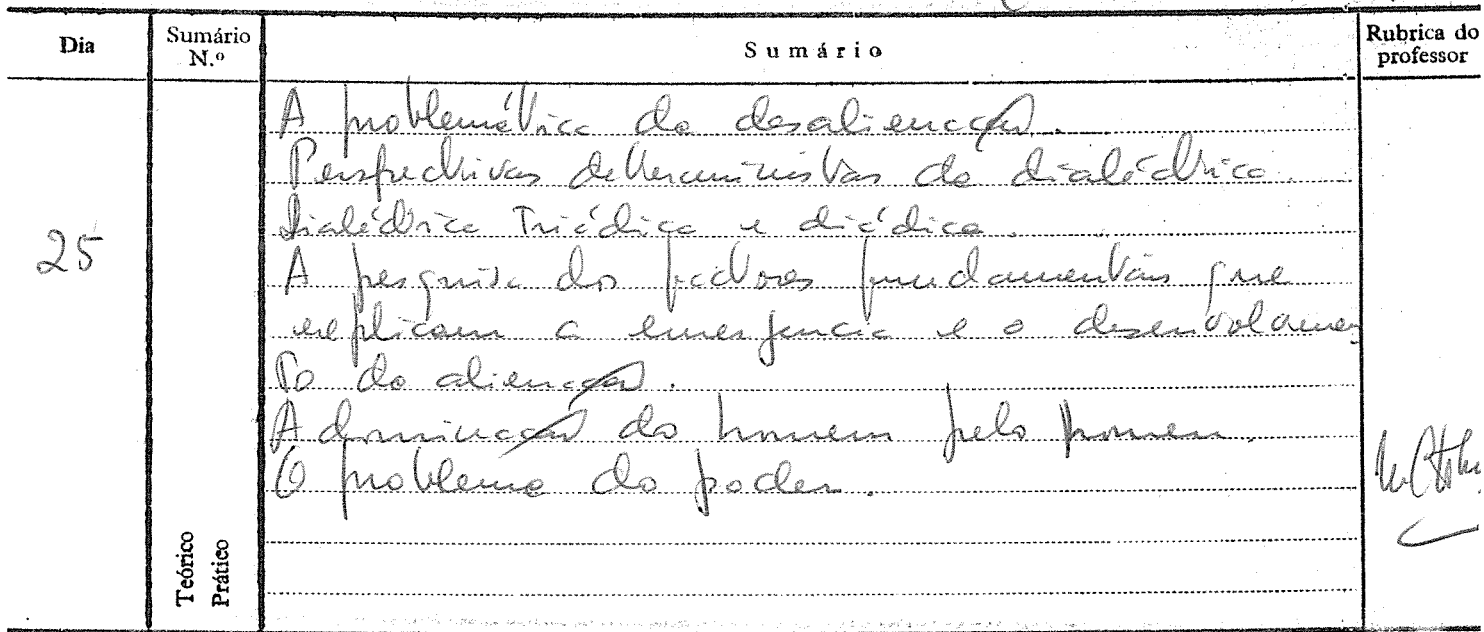 Dia
Sumário N.º
Sumário
Rubrica do professor
A problemática da desalienação.
Perspectivas deterministas da dialéctica.
Dialéctica Triádica e diádica.
25
A pesquisa dos factores fundamentais que
explicam a emergencia e o desenvolvimen
to da alienação.
A dominação do homem pelo homem.
O problema do poder.
Teórico
Prático